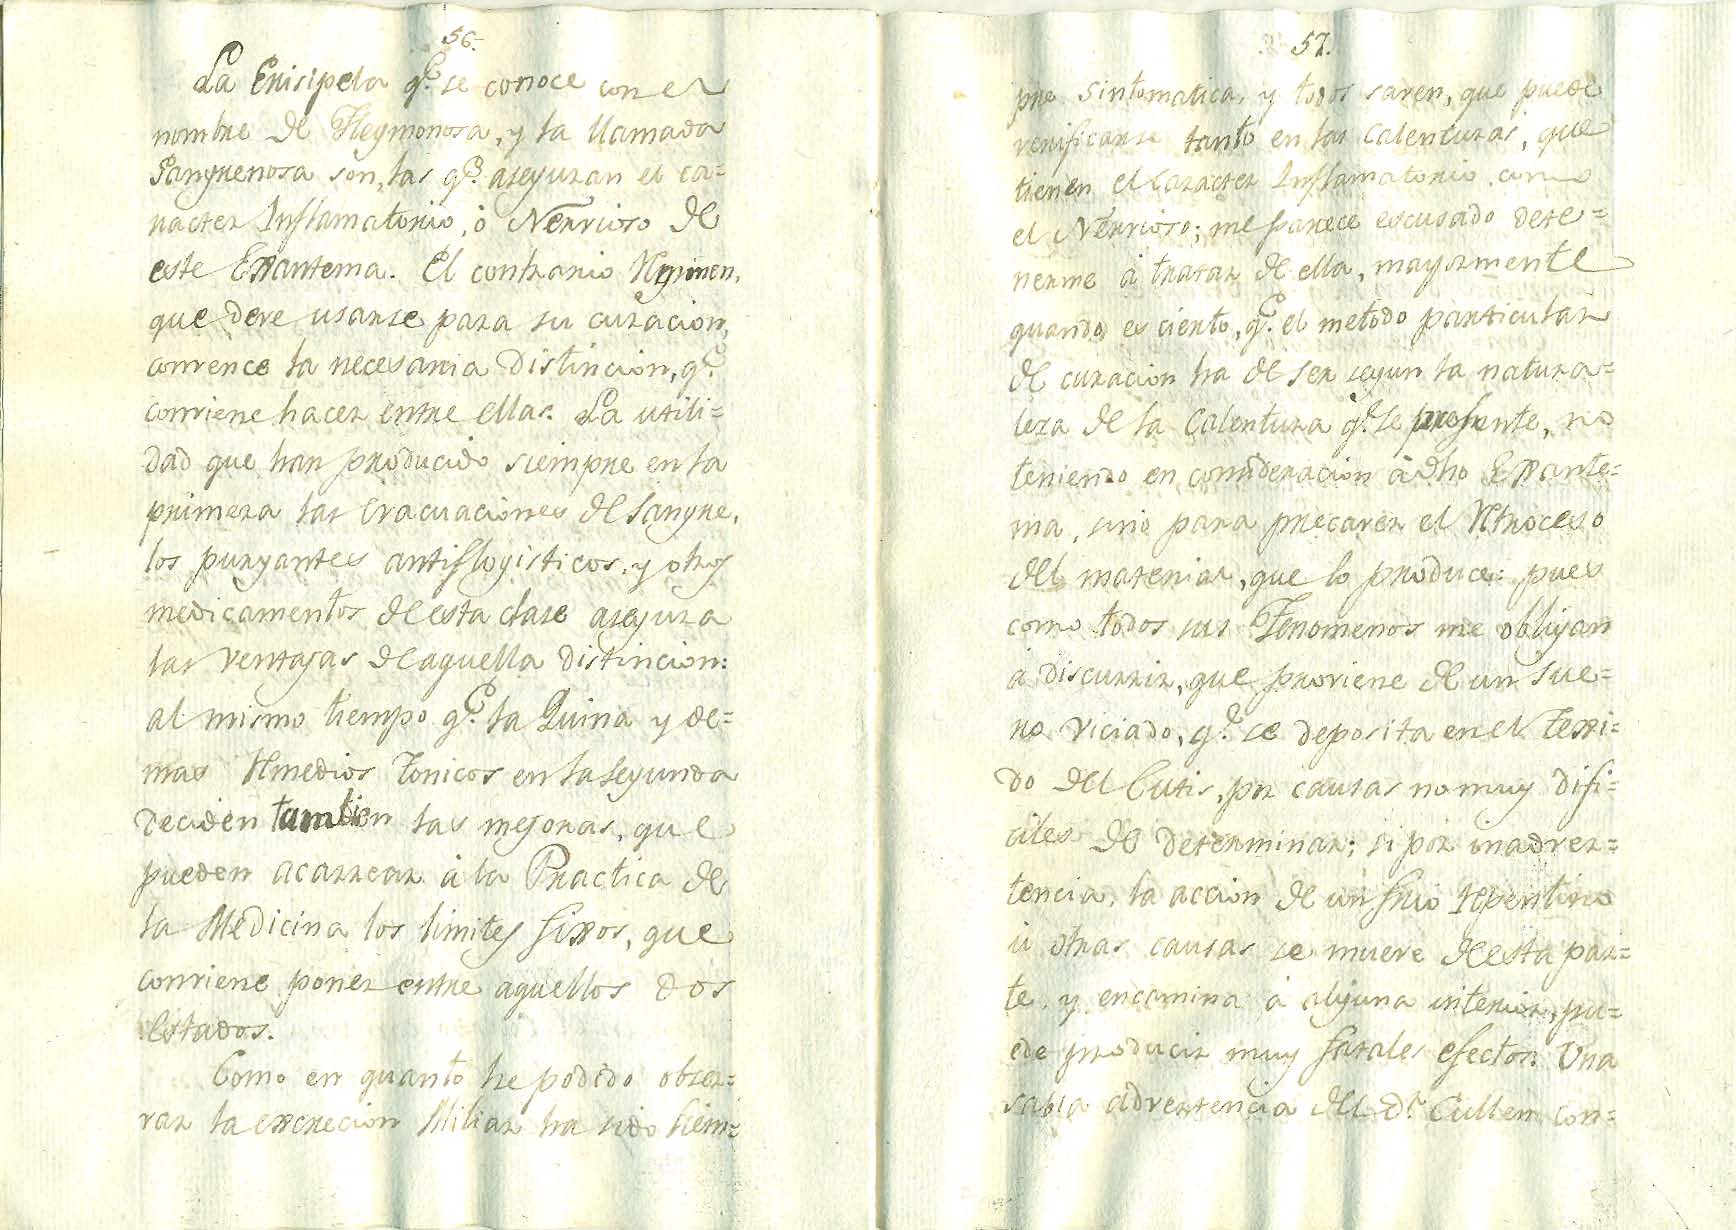 56.
La Erisipela q.e se conoce con el
nombre de Flegmonosa, y la llamada
Sangrenosa son, las q.e aseguran el ca=
racter Inflamatorio, ó Nervioso de
este Exantema. El contrario Regimen,
que deve usarse para su curacion,
convence la necesaria Distincion, q.e
conviene hacer entre ellas. La utili=
dad que han producido siempre en la
primera las Evacuaciones de Sangre,
los purgantes antiflogisticos, y otros
medicamentos de esta clase asegura
las ventajas de aquella distincion:
al mismo tiempo q.e la Quina y de=
mas Remedios Tonicos en la segunda
deciden tambien las mejoras, que
pueden acarrear á la Practica de
la Medicina los limites fixos, que
conviene poner entre aquellos dos
Estados.
Como en quanto he podido obser=
var la excrecion Miliar ha sido siem=
57.
pre Sintomatica, y todos saven, que puede
verificarse tanto en las Calenturas, que
tienen el Caracter Inflamatorio, como
el Nervioso; me parece escusado dete=
nerme á tratar de ella, mayormente
quando es cierto, q.e el metodo particular
de curacion ha de ser segun la natura=
leza de la Calentura q.e se presente, no
teniendo en consideracion á dho Exante=
ma, sino para precaver el Retroceso
del material, que lo produce: pues
como todos sus Fenomenos me obligan
á discurrir, que proviene de un sue=
ro viciado, q.e se deposita en el texi=
do del Cutis, por causas no muy difi=
ciles de determinar; si por inadver=
tencia, la accion de un frio repentino
ú otras causas se mueve de esta par=
te, y encamina á alguna interior, pu=
ede producir muy fatales efectos. Una
sabia advertencia del D.r Cullen con=